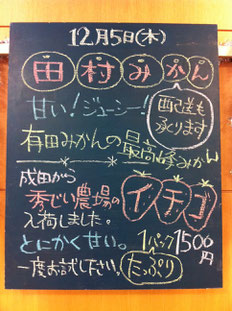 12月5日(木)
田村みかん
甘い!ジューシー!
配送も
承ります
有田みかんの最高峰みかん
成田から
秀じい農場の
イチゴ
入荷しました。
とにかく甘い。
1パック1500円
たっぷり
一度お試し下さい。